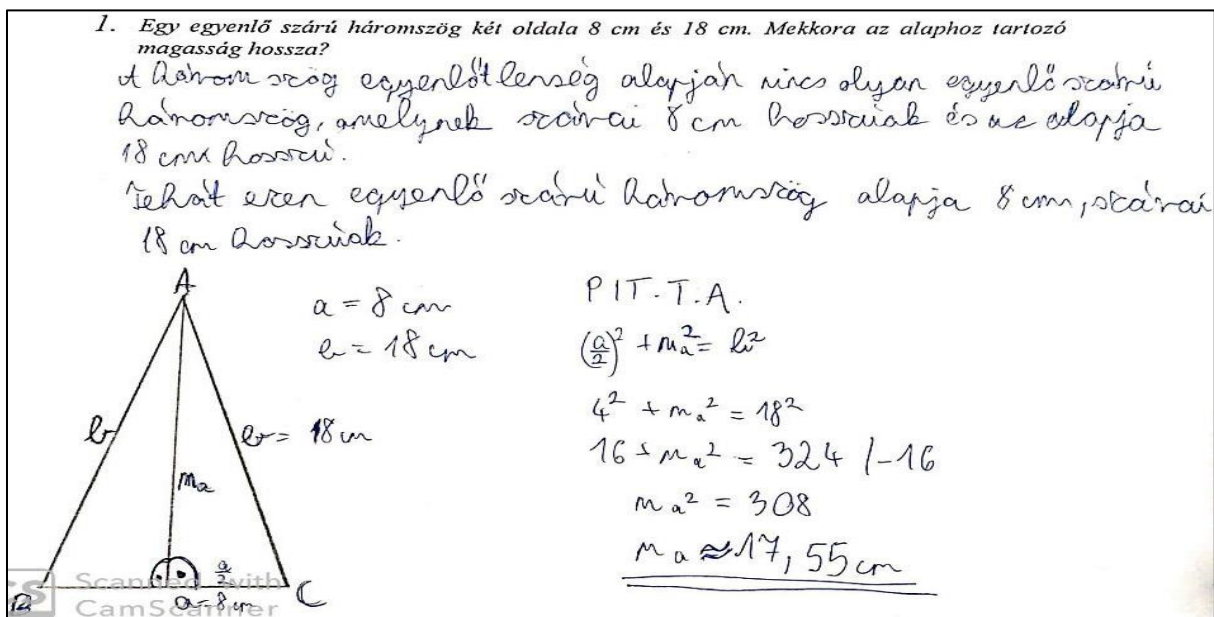 1. Egy egyenlő szárú háromszög két oldala 8 cm és 18 cm. Mekkora az alaphoz tartozó
magasság hossza?
A háromszög egyenlőtlenség alapján nincs olyan egyenlő szárú
háromszög, amelynek szárai 8 cm hosszúak és az alapja
18 cm hosszú.
Tehát ezen egyenlő szárú háromszög alapja 8 cm, szárai
18 cm hosszúak.
A
a = 8 cm
b = 18 cm
b
b = 18 cm
ma
a/2
a = 8 cm
C
PIT.T.A.
(a/2)² + ma² = b²
4² + ma² = 18²
16 + ma² = 324 /-16
ma² = 308
ma ≈ 17,55 cm
CS Scanned with
CamScanner